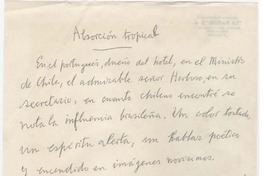 Absorción tropical
En el portugués, dueño del hotel, en el Ministro
de Chile, el admirable señor Herboso, en su
secretario, en cuanto chileno encontré se
nota la influencia brasileña. Un color tostado,
un espíritu alerta, un hablar poético
y encendido en imágenes novísimas.